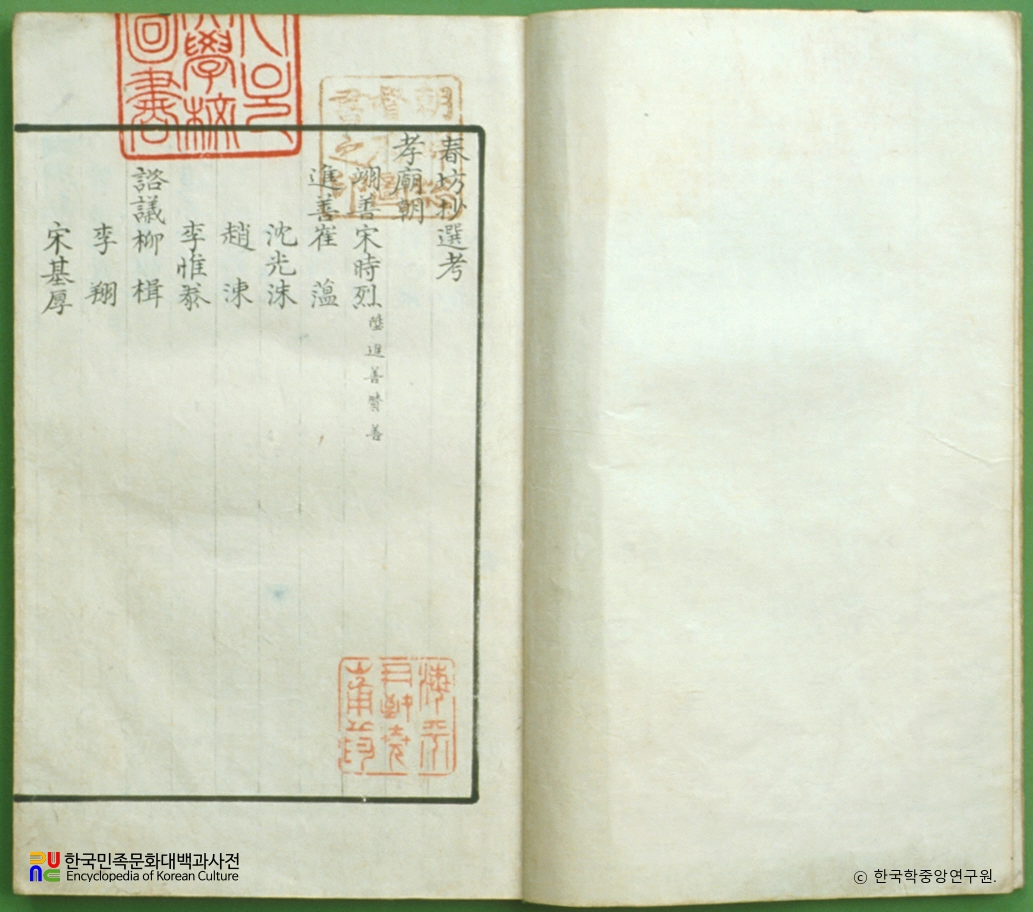 春坊抄選考
孝廟朝
翊善宋時烈 陞進善贊善
進善崔 蕰
沈光洙
趙 涑
李惟泰
諮議柳 楫
李 翔
宋基厚
한국민족문화대백과사전
Encyclopedia of Korean Culture
ⓒ 한국학중앙연구원.